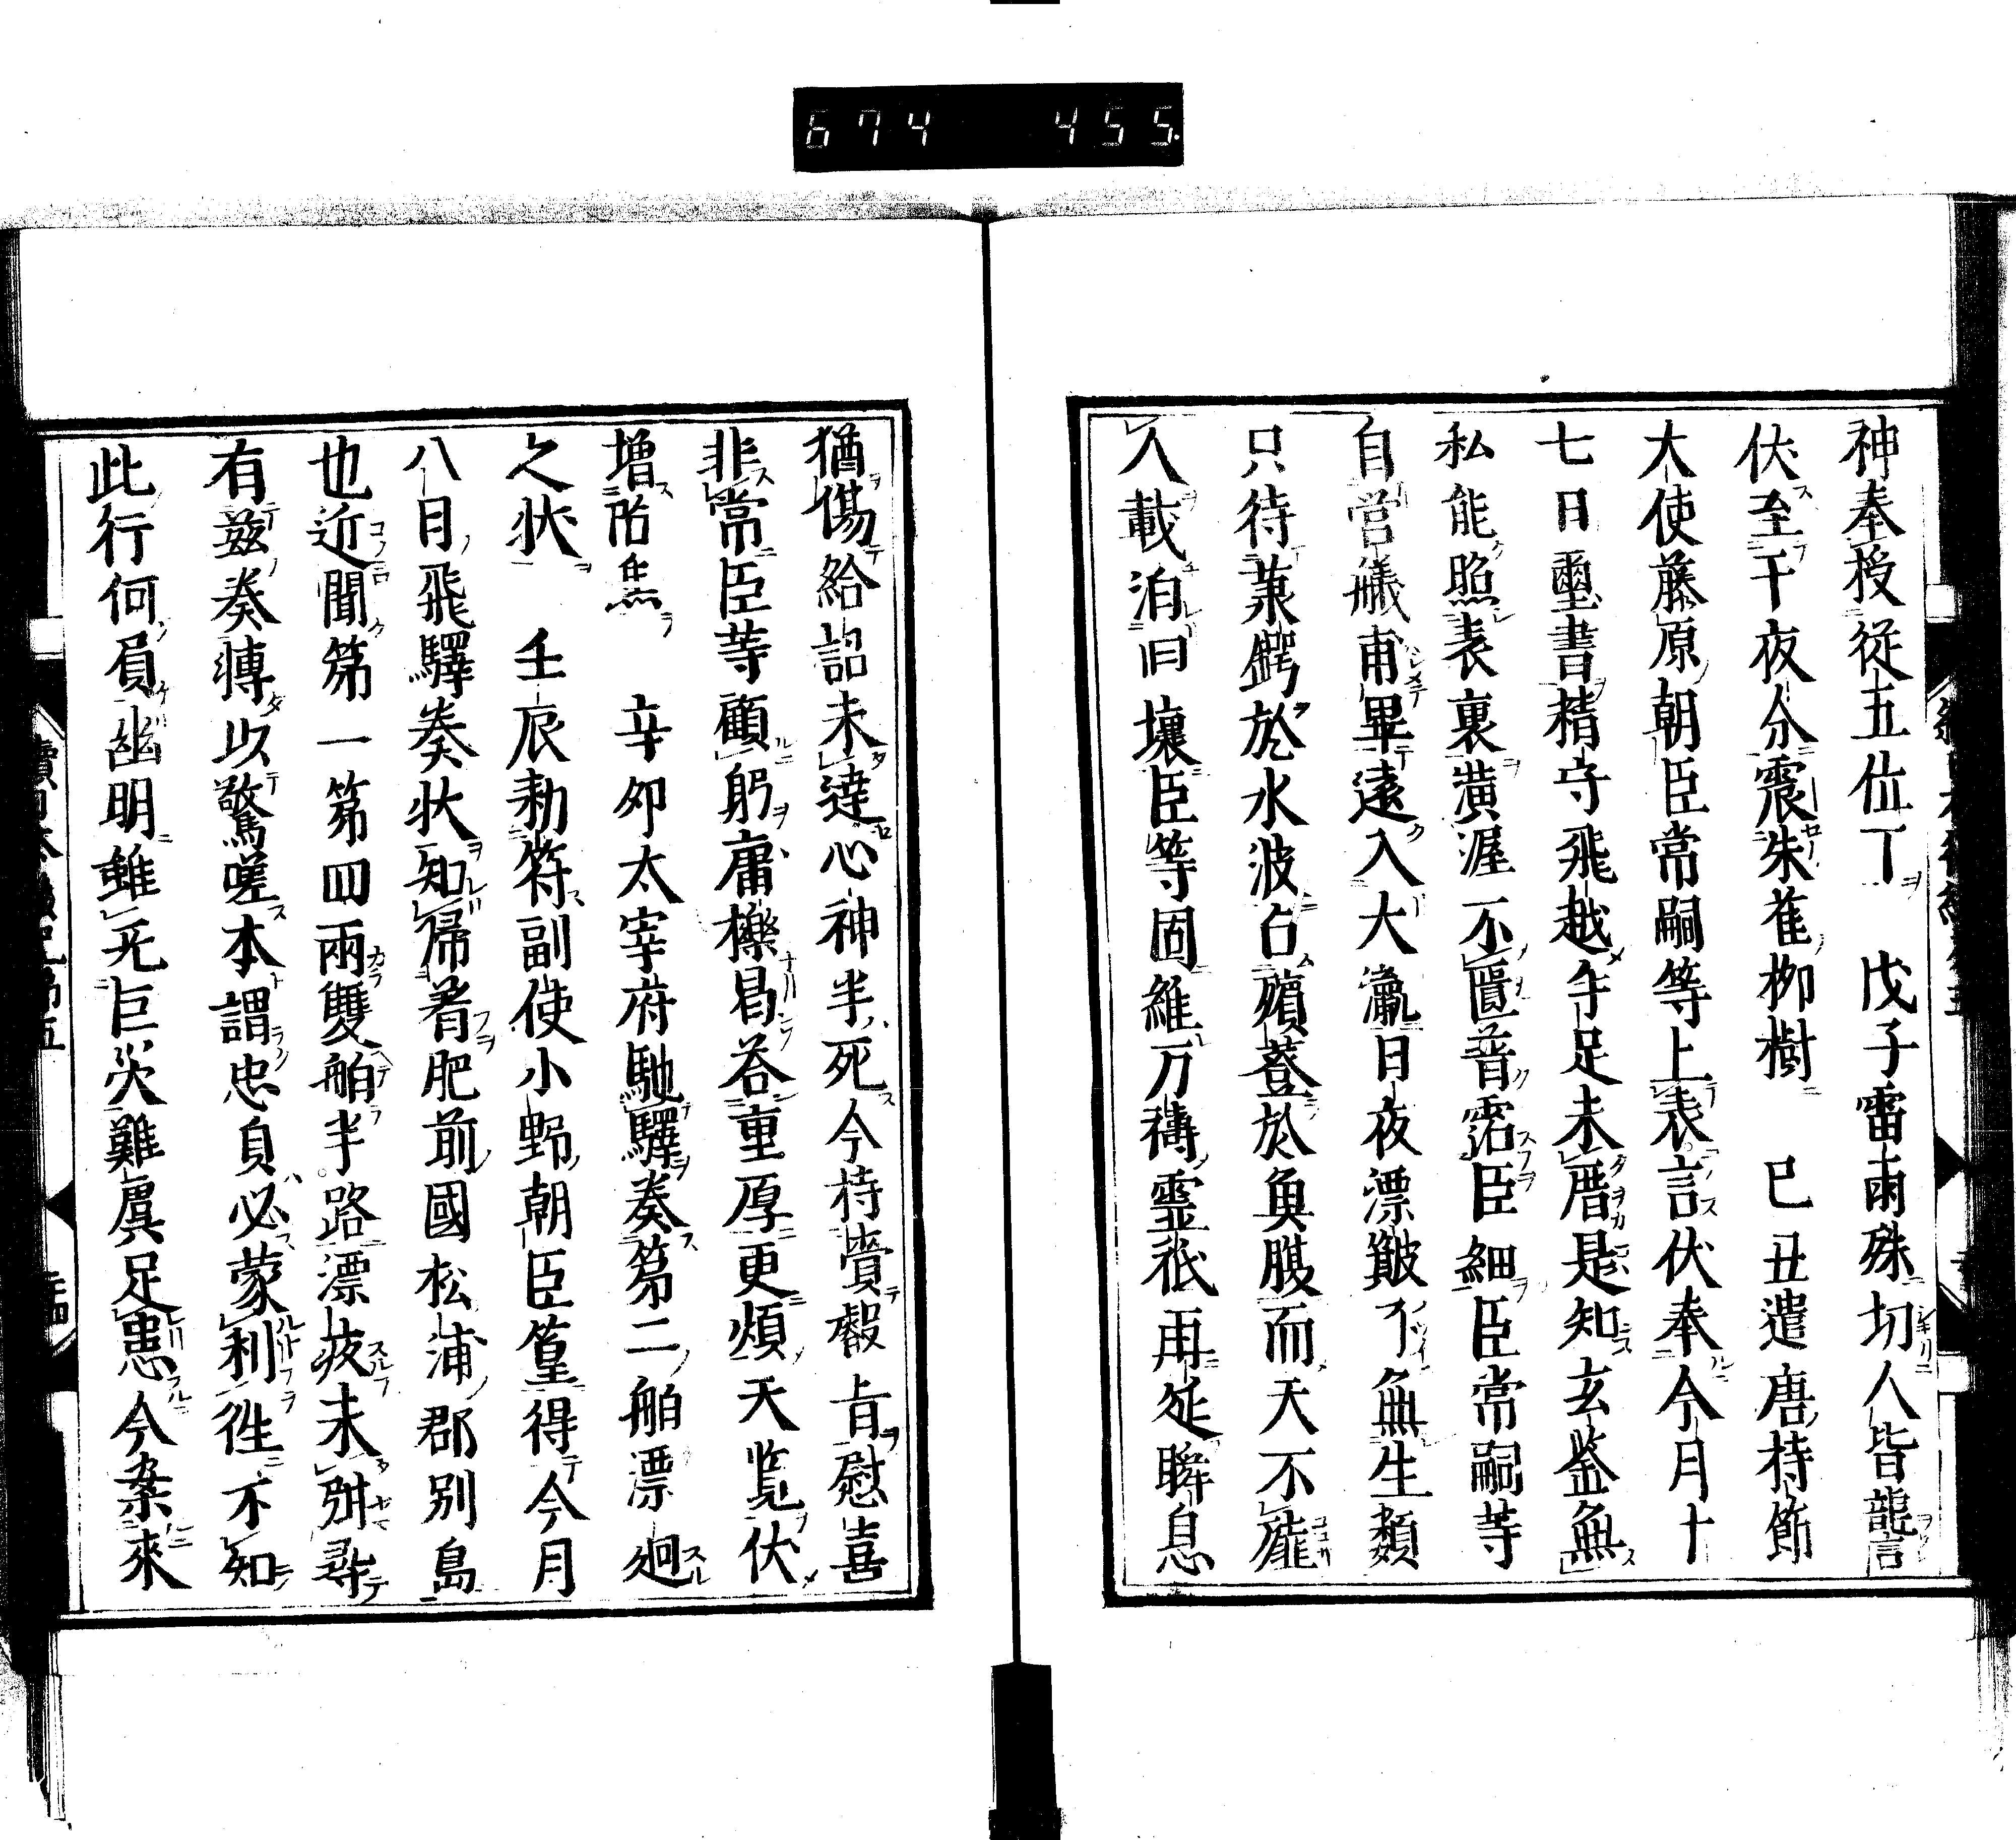 674 455
神奉授從五位丁 戊子雷雨殊切人皆讋
伏至于夜分震朱雀柳樹 巳丑遣唐持節
大使藤原朝臣常嗣等上表言伏奉今月十
七日璽書精守飛越手足未厝是知玄鑒無
私能照表裏潢渥不匱普霑臣細臣常嗣等
自営艤甫畢遠入大瀛日夜漂蕩下無生類
只待葬鰐於水波白殯薹於魚腹而天不
人載泊旧壤臣等固維万禱靈祇再延瞬息
猶傷給詔未達心神半死今持賚殺旨慰喜
非常臣等顧躬庸櫟曷荅重厚更煩天覧伏
增啓焦 辛夘太宰府馳驛奏第二舶漂廻
之狀 壬辰勅符副使小野朝臣篁得今月
八日飛驛奏状知帰着肥前國松浦郡別島
也近聞第一第四兩雙舶半路漂疲未尋
有兹奏慱以驚嗟本謂忠貞必蒙利徃不知
此行何負幽明雖无巨災難虞足患今案來
續日本後紀第五